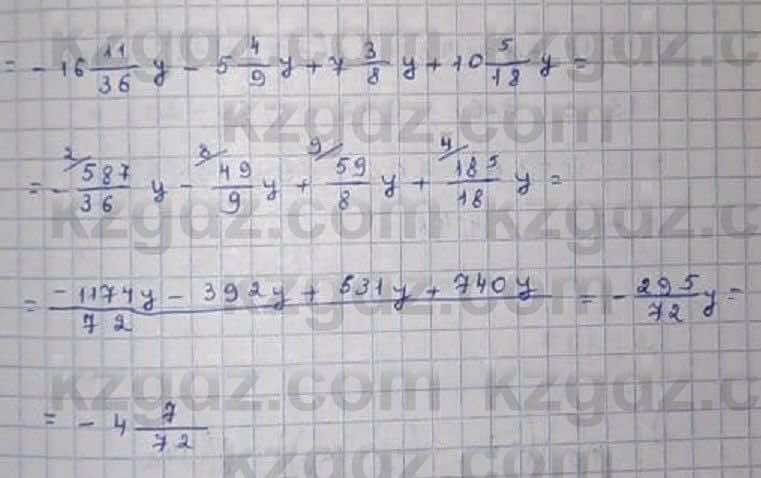 kzgdz.com kzgdz.com
= - 16 11/36 y - 5 4/9 y + 7 3/8 y + 10 5/18 y =
kzgdz.com
2/ 8/ 9/ 4/
= - 587/36 y - 49/9 y + 59/8 y + 185/18 y =
kzgdz.com kzgdz.com
= -1174y - 392y + 531y + 740y / 72 = - 295/72 y =
kzgdz.com
kzgdz.com kzgdz.com
= - 4 7/72
kzgdz.com